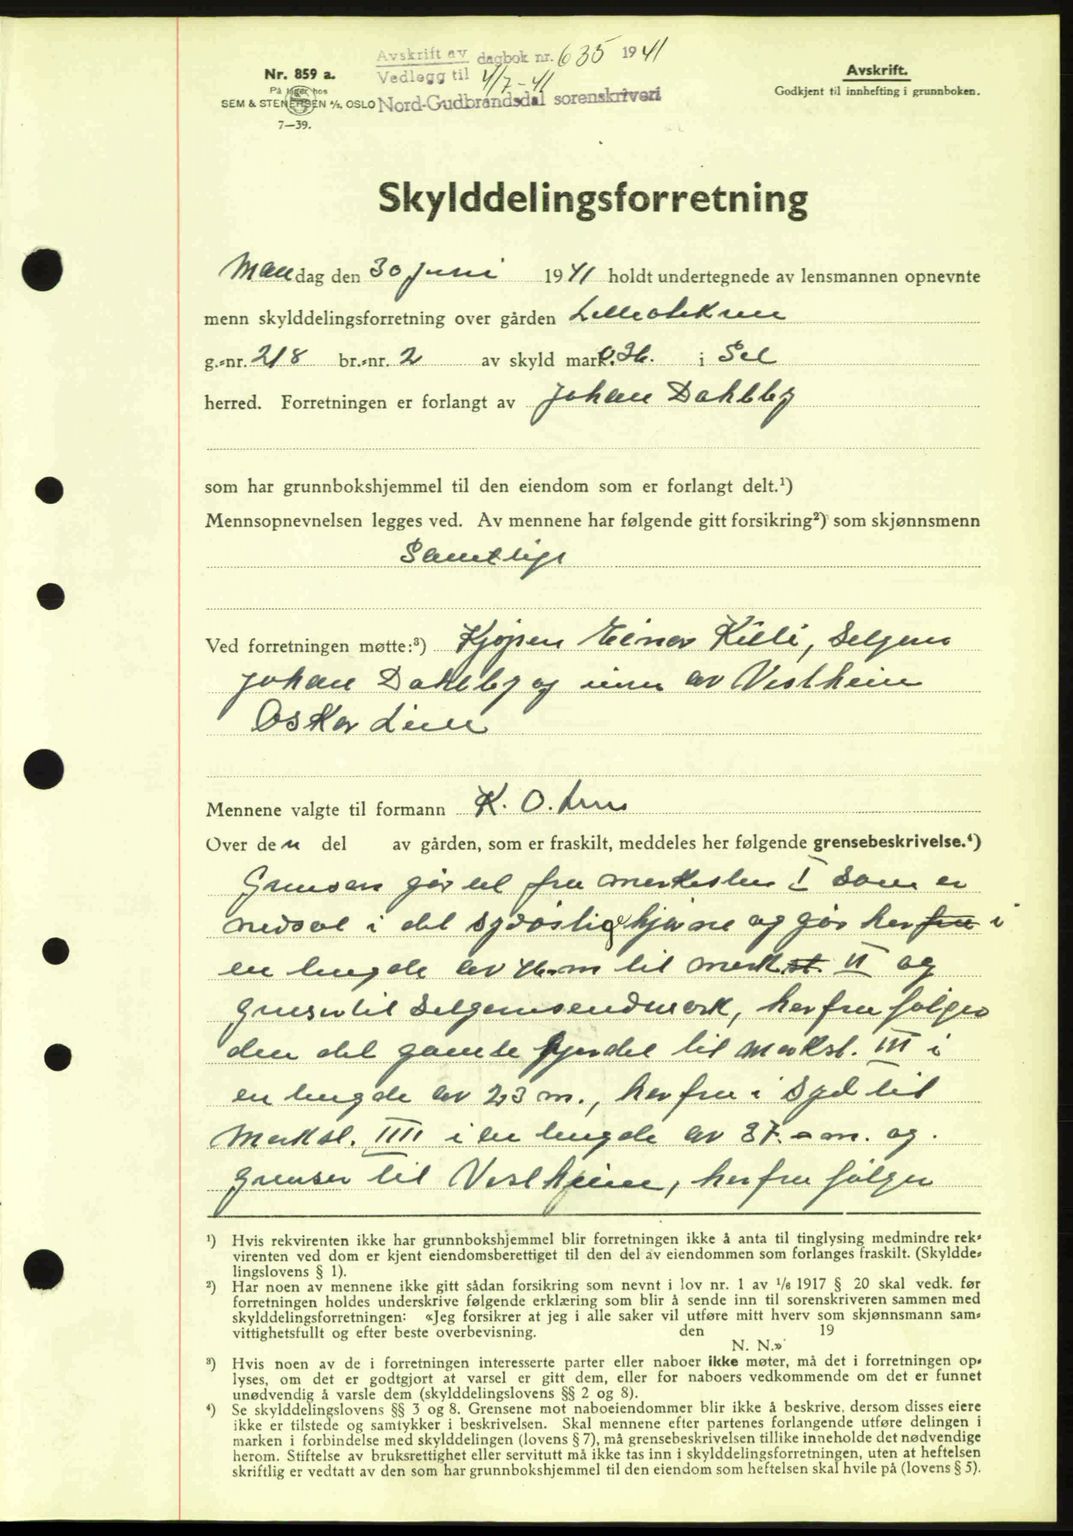 Avskrift av dagbok nr. 635 1941
Vedlegg til 4/7-41
Nord-Gudbrandsdal sorenskriveri
Nr. 859 a.
På lager hos
SEM & STENERSEN A/S, OSLO
7—39.
Avskrift.
Godkjent til innhefting i grunnboken.
Skylddelingsforretning
Mandag den 30 juni 1941 holdt undertegnede av lensmannen opnevnte
menn skylddelingsforretning over gården
g.-nr. 218 br.-nr. 2 av skyld mark 0.36. i Sel
herred. Forretningen er forlangt av Johan Dahlby
som har grunnbokshjemmel til den eiendom som er forlangt delt.¹)
Mennsopnevnelsen legges ved. Av mennene har følgende gitt forsikring²) som skjønnsmenn
Samtlige
Ved forretningen møtte:³) Kjøperen Einar Killi, Selgeren
Johan Dahlby og av Vestheim
Oskar Lien
Mennene valgte til formann K. O.
Over den del av gården, som er fraskilt, meddeles her følgende grensebeskrivelse.⁴)
Grensen går ut fra merkesten I som er
nedsat i det sydøstlige hjørne og går herfra i
en lengde av 46 m til merkst. II og
grenser til Selgerens , herfra følger
den det gamle gjerdet til merkst. III i
en lengde av 23 m., herfra i Syd til
Merkst. IIII i en lengde av 37 m. og
grenser til Vestheim, herfra følger
¹) Hvis rekvirenten ikke har grunnbokshjemmel blir forretningen ikke å anta til tinglysing medmindre rek-
virenten ved dom er kjent eiendomsberettiget til den del av eiendommen som forlanges fraskilt. (Skyldde-
lingslovens § 1).
²) Har noen av mennene ikke gitt sådan forsikring som nevnt i lov nr. 1 av 1/6 1917 § 20 skal vedk. før
forretningen holdes underskrive følgende erklæring som blir å sende inn til sorenskriveren sammen med
skylddelingsforretningen: «Jeg forsikrer at jeg i alle saker vil utføre mitt hverv som skjønnsmann sam-
vittighetsfullt og efter beste overbevisning. den 19
N. N.»
³) Hvis noen av de i forretningen interesserte parter eller naboer ikke møter, må det i forretningen op-
lyses, om det er godtgjort at varsel er gitt dem, eller for naboers vedkommende om det er funnet
unødvendig å varsle dem (skylddelingslovens §§ 2 og 8).
⁴) Se skylddelingslovens §§ 3 og 8. Grensene mot naboeiendommer blir ikke å beskrive, dersom disses eiere
ikke er tilstede og samtykker i beskrivelsen. Skal mennene efter partenes forlangende utføre delingen i
marken i forbindelse med skylddelingen (lovens § 7), må grensebeskrivelsen tillike inneholde det nødvendige
herom. Stiftelse av bruksrettighet eller servitutt må ikke tas inn i skylddelingsforretningen, uten at heftelsen
skriftlig er vedtatt av den som har grunnbokshjemmel til den eiendom som heftelsen skal hvile på (lovens § 5).